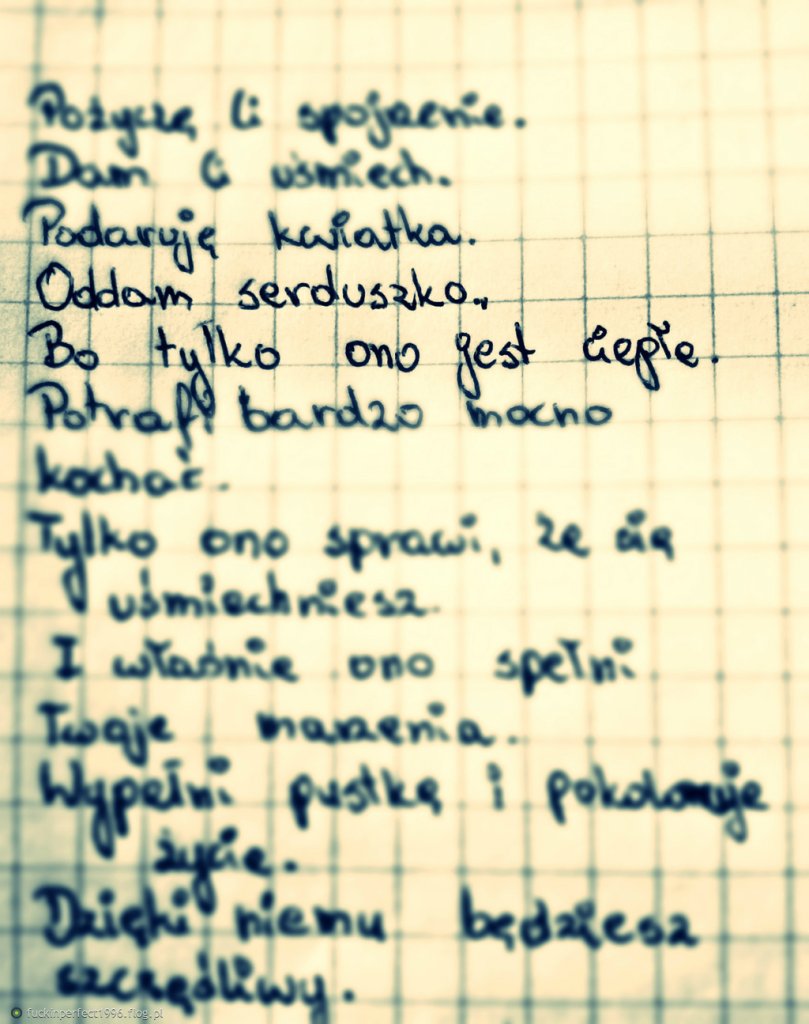 Pożyczę Ci spojrzenie.
Dam Ci uśmiech.
Podaruję kwiatka.
Oddam serduszko..
Bo tylko ono jest ciepłe.
Potrafi bardzo mocno
kochać.
Tylko ono sprawi, że się
uśmiechniesz.
I właśnie ono spełni
Twoje marzenia.
Wypełni pustkę i pokoloruje
życie.
Dzięki niemu będziesz
szczęśliwy.
fuckinperfect1996.flog.pl